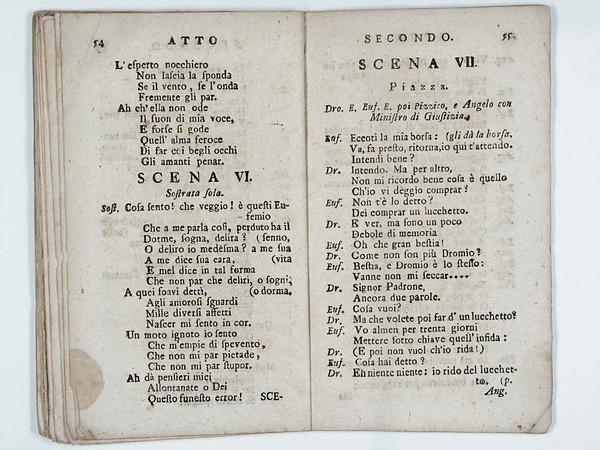 54 ATTO
L'esperto nocchiero
Non lascia la sponda
Se il vento, se l'onda
Fremente gli par.
Ah ch'ella non ode
Il suon di mia voce,
E forse si gode
Quell' alma feroce
Di far coi begli occhi
Gli amanti penar.
SCENA VI.
Sostrata sola.
Sost. Cosa sento! che veggio! è questi Eu-
femio
Che a me parla così, perduto ha il
Dorme, sogna, delira? (senno,
O deliro io medesma? a me sua
A me dice sua cara, (vita
E mel dice in tal forma
Che non par che deliri, o sogni,
A quei soavi detti, (o dorma.
Agli amorosi sguardi
Mille diversi affetti
Nascer mi sento in cor.
Un moto ignoto io sento
Che m'empie di spevento,
Che non mi par pietade,
Che non mi par stupor.
Ah dà pensieri miei
Allontanate o Dei
Questo funesto error! SCE-
SECONDO. 55
SCENA VII.
Piazza.
Dro. E. Euf. E. poi Pizzico, e Angelo con
Ministro di Giustizia.
Euf. Eccoti la mia borsa: (gli dà la borsa.
Va, fa presto, ritorna, io qui t'attendo.
Intendi bene?
Dr. Intendo. Ma per altro,
Non mi ricordo bene cosa è quello
Ch'io vi deggio comprar?
Euf. Non t'è lo detto?
Dei comprar un lucchetto.
Dr. E ver, ma sono un poco
Debole di memoria
Euf. Oh che gran bestia!
Dr. Come non son più Dromio?
Euf. Bestia, e Dromio è lo stesso:
Vanne non mi seccar....
Dr. Signor Padrone,
Ancora due parole.
Euf. Cosa vuoi?
Dr. Ma che volete poi far d'un lucchetto?
Euf. Vo almen per trenta giorni
Mettere sotto chiave quell'infida:
Dr. (E poi non vuol ch'io rida!)
Euf. Cosa hai detto?
Dr. Eh niente niente: io rido del lucchet-
to. (p.
Ang.